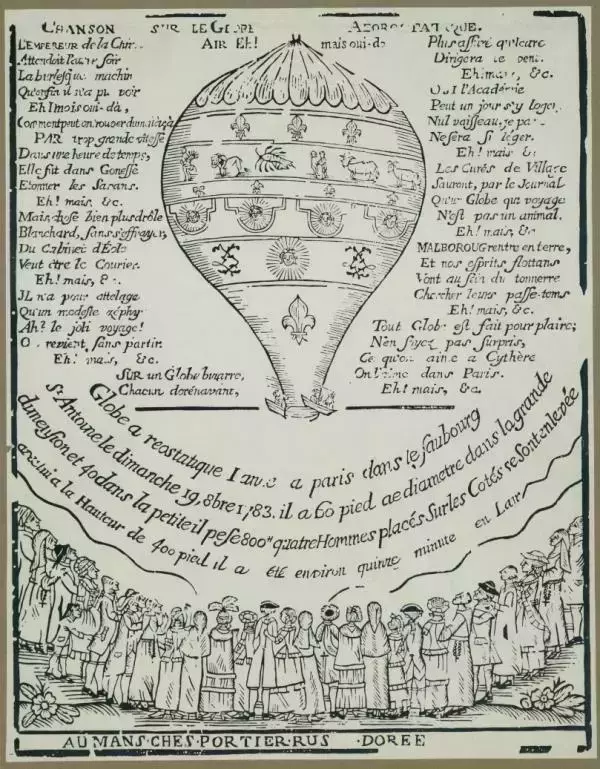 CHANSON SUR LE GLOBE
AIR Eh! mais oui-da
L'EMPEREUR de la
Attendoit
La burlesque machin
Qu'enfin il n'a pu voir
Eh! mois oui-dà,
Comment peut on trouver du mal à ça
PAR trop grande vitesse
Dans une heure de temps,
Elle fut dans Gonesse
Etonner les Sarans.
Eh! mais, &c.
Mais chose bien plus drôle
Blanchard, sans s'effrayer,
Du Cabinet d'Éole
Veut être le Courier.
Eh! mais, &c.
IL n'a pour attelage
Qu'un modeste zéphyr
Ah? le joli voyage!
revient, sans partir.
Eh! mais, &c.
SUR un Globe bizarre,
Chacun dorénavant,
Plus affuré qu'Icare
Dirigera le vent.
Eh! mais, &c.
OUI l'Académie
Peut un jour s'y loger,
Nul vaisseau, je
Ne sera si léger.
Eh! mais &
Les Curés de Village
Sauront, par le Journal
Qu'un Globe qui voyage
N'est pas un animal.
Eh! mais, &c
MALBOROUG rentre en terre,
Et nos esprits flottans
Vont au sein du tonnerre
Chercher leurs passe-tems
Eh! mais, &c.
Tout Globe est fait pour plaire;
N'en soyez pas surpris,
Ce qu'on aime à Cythère
On l'aime dans Paris.
Eh! mais, &c.
Globe a reostatique a paris dans le faubourg
St Antoine le dimanche 19, 8bre 1783. il a 60 pied de diametre dans la grande
dimension et 40 dans la petite il pese 800# quatre Hommes placés Sur les Cotés se sont enlevée
a la Hauteur de 400 pied il a été environ quinze minute en Lair
AU MANS CHES PORTIER RUS DOREE